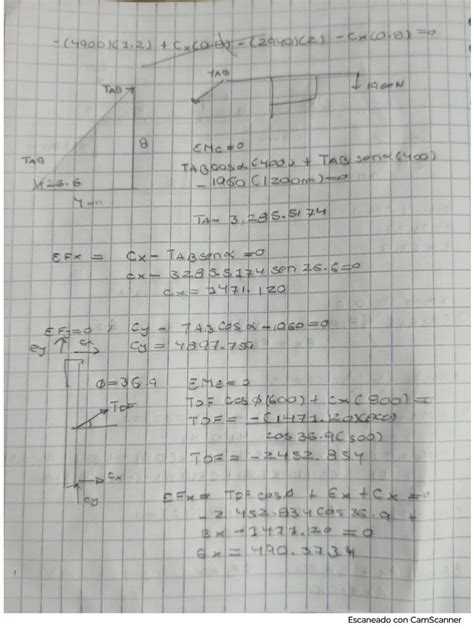 -(4900)(1.2) + Cx(0.8) - (2940)(2) - Cx(0.8) = 0
TAB
TAB
1960N
8
TAB
26.6
4 m
ΣMc=0
TAB cos α (400) + TAB sen α (400)
- 1960 (1200m) = 0
TA= 3,285.5174
ΣFx = Cx - TAB sen α = 0
Cx - 3285.5174 sen 26.6 = 0
Cx = 1471.120
ΣFy=0 ; Cy - TAB cos α - 1960 = 0
Cy = 4897.75
Ey
φ=36.9
ΣME=0
TDF
TDF cos φ (600) + Cx (800) =
TDF = -(1471.120)(800)
cos 36.9 (600)
TDF = -2452.834
Cx
Cy
ΣFx = TDF cos φ + Ex + Cx = 0
-2452.834 cos 36.9 +
Ex - 1471.120 = 0
Ex = 490.3734
Escaneado con CamScanner